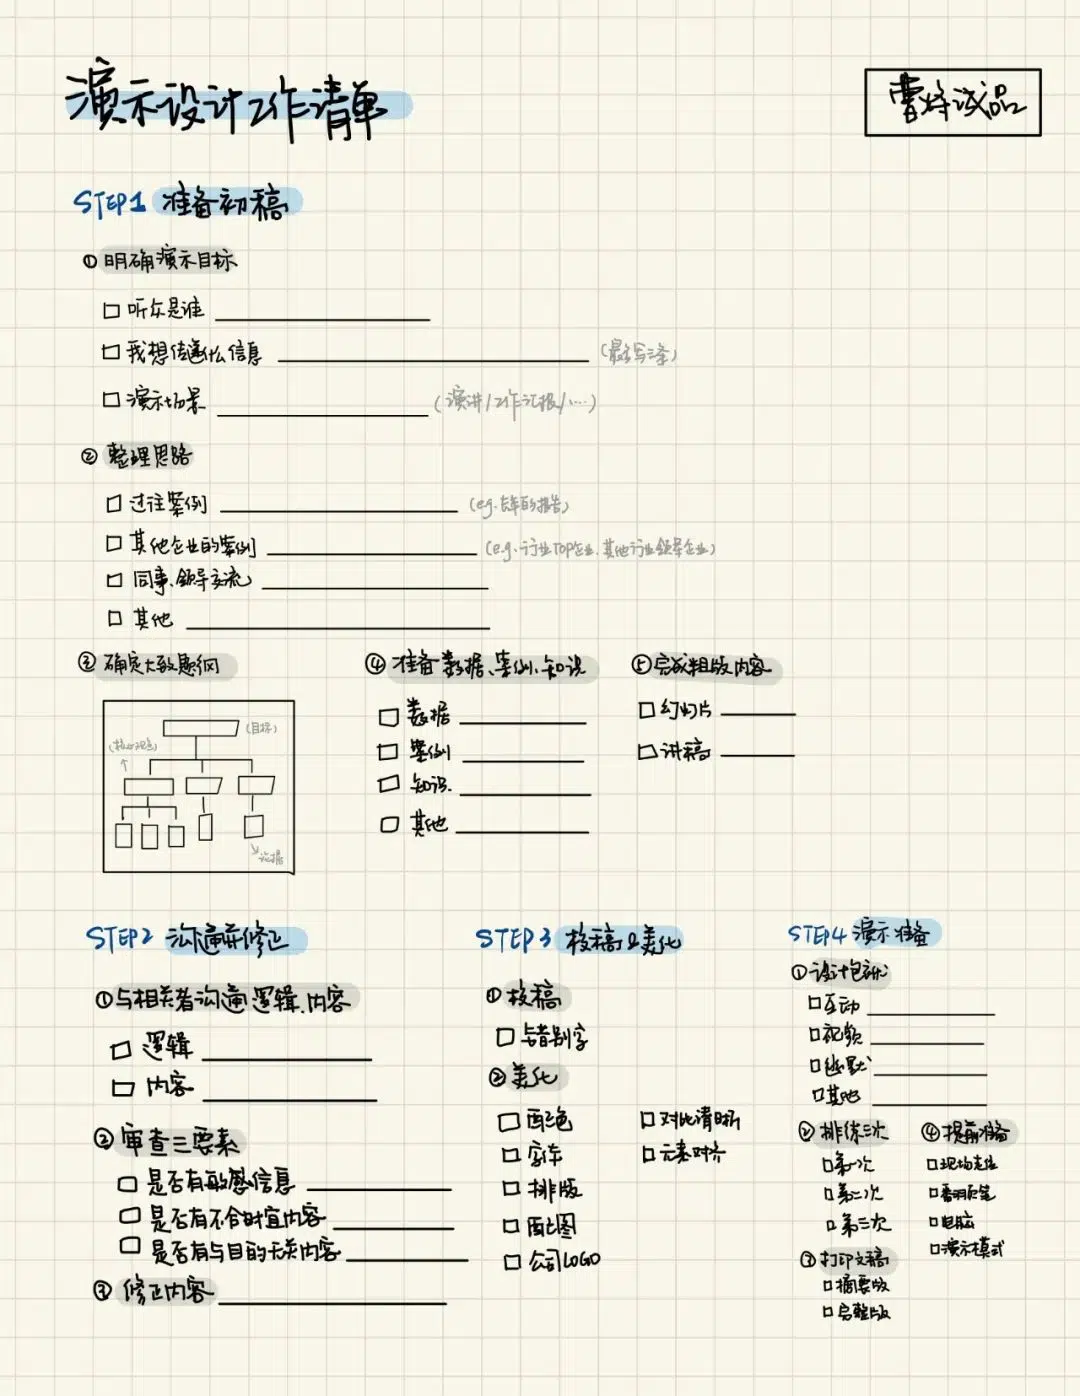 演示设计工作清单
曹将诚品
STEP1 准备初稿
① 明确演示目标
听众是谁
我想传递什么信息 (最多写三条)
演示场景 (演讲/工作汇报/....)
② 整理思路
过往案例 (e.g. 去年的报告)
其他企业的案例 (e.g. 行业TOP企业、其他行业领导企业)
同事、领导交流
其他
③ 确定大致题纲
(目标)
论据
④ 准备数据、案例、知识
数据
案例
知识
其他
⑤ 完成粗版内容
幻灯片
讲稿
STEP2 沟通并修正
① 与相关者沟通逻辑、内容
逻辑
内容
② 审查三要素
是否有敏感信息
是否有不合时宜内容
是否有与目的无关内容
③ 修正内容
STEP3 校稿&美化
① 校稿
错别字
② 美化
配色
字体
排版
配图
公司LOGO
对比清晰
元素对齐
STEP4 演示准备
① 设计包袱
互动
视频
幽默
其他
② 排练三次
第一次
第二次
第三次
③ 打印文稿
摘要版
完整版
④ 提前准备
现场走位
翻页笔
电脑
演示模式